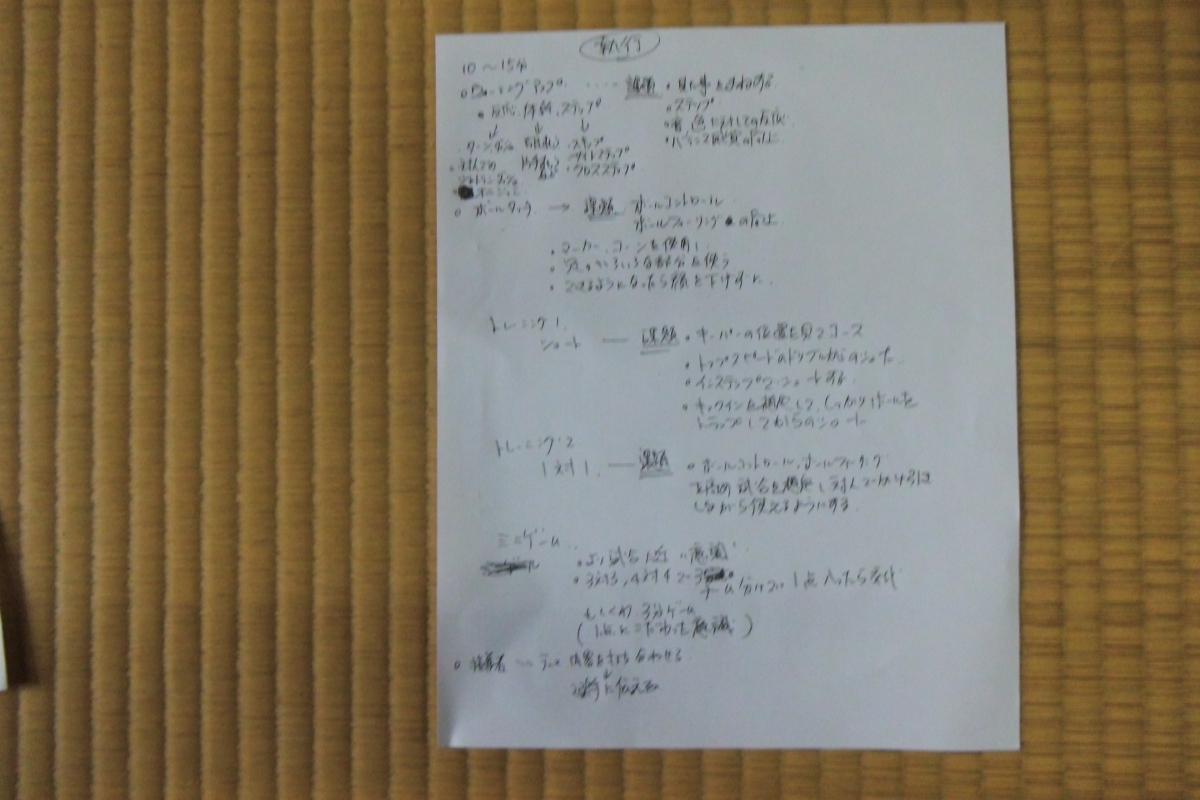 執行
10〜15分
ウォーミングアップ ‥‥ 課題 ・見た事をまねする
・反応、体幹、ステップ ・ステップ
・音、色に対しての反応
・バランス感覚の向上
ターン スキップ
・対人での サイドステップ
クロスステップ
ボールタッチ → 課題 ボールコントロール
ボールフィーリングの向上
・マーカー、コーンを使用し
・足のいろいろな部分を使う
・できるようになったら顔を下げずに
トレーニング1. 
シュート — 課題 ・キーパーの位置を見てコース
・トップスピードのドリブルからのシュート
・インステップでシュートする
・キックインを想定して、しっかりボールを
トラップしてからのシュート
トレーニング2
1対1. — 課題 ・ボールコントロール、ボールフィーリング
試合を想定し対人でかけ引き
しながら使えるようにする
ミニゲーム
・より試合に近い意識
・3対3,4対4で チーム分けで 1点入ったら交代
もしくわ 3分ゲーム
(1点にこだわった意識)
指導者 を打ち合わせる
↓
選手に伝える